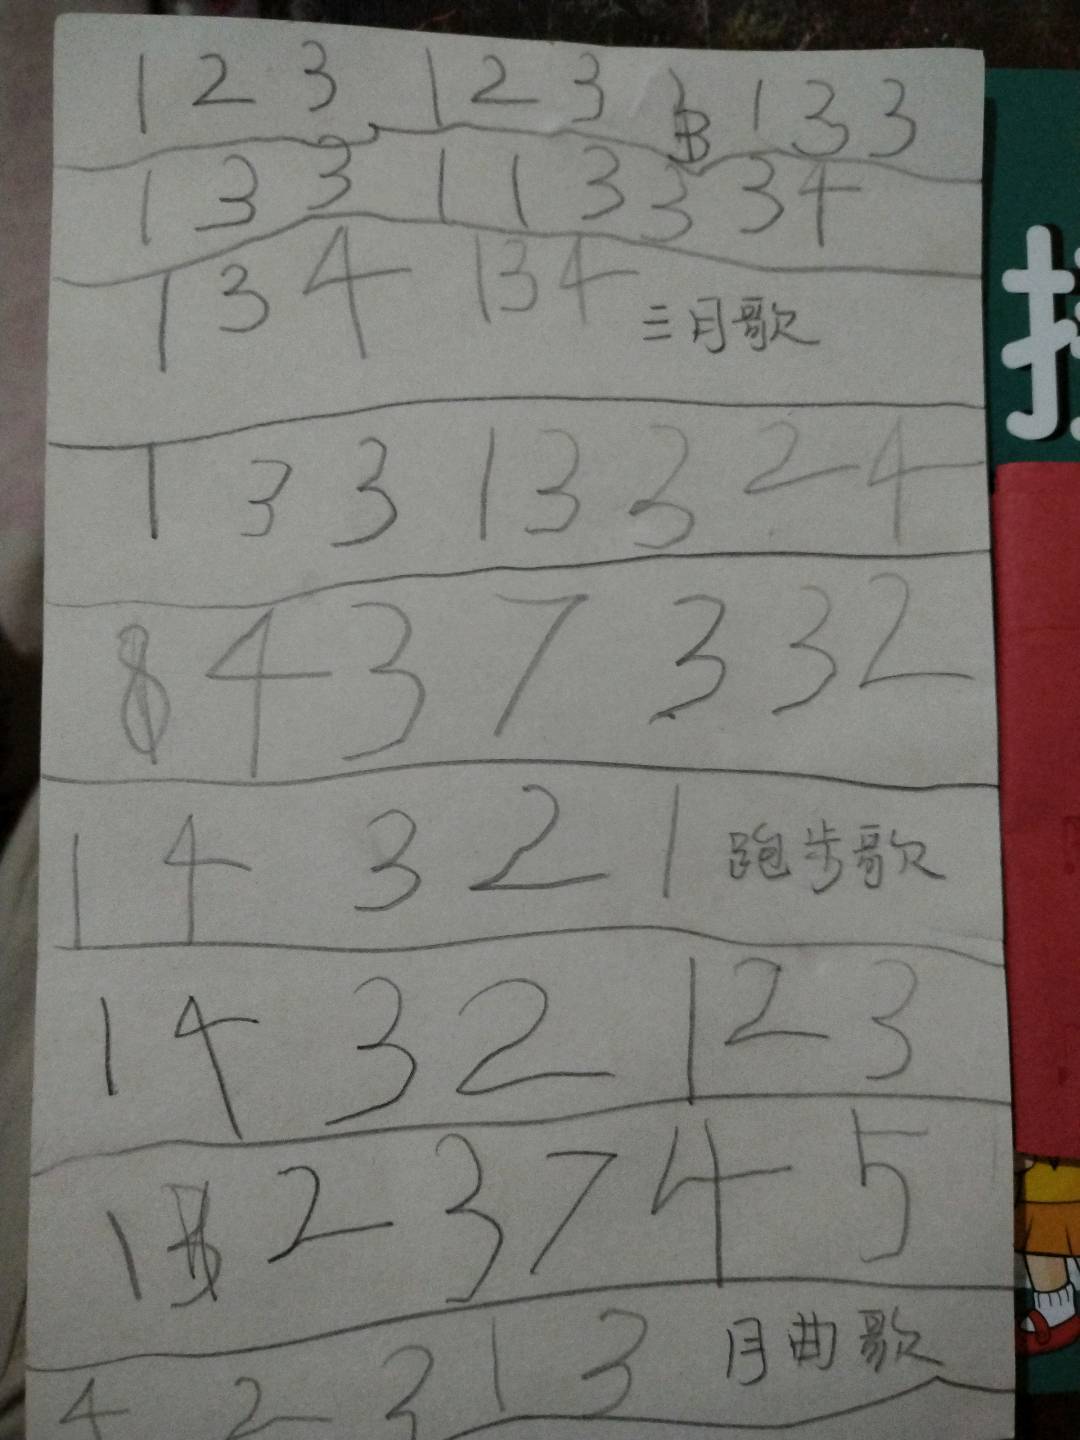 1 2 3 1 2 3 1 3 3
1 3 3 1 1 3 3 3 4
1 3 4 1 3 4 三月歌
1 3 3 1 3 3 2 4
4 3 7 3 3 2
1 4 3 2 1 跑步歌
1 4 3 2 1 2 3
1 2 3 7 4 5
4 2 3 1 3 月曲歌